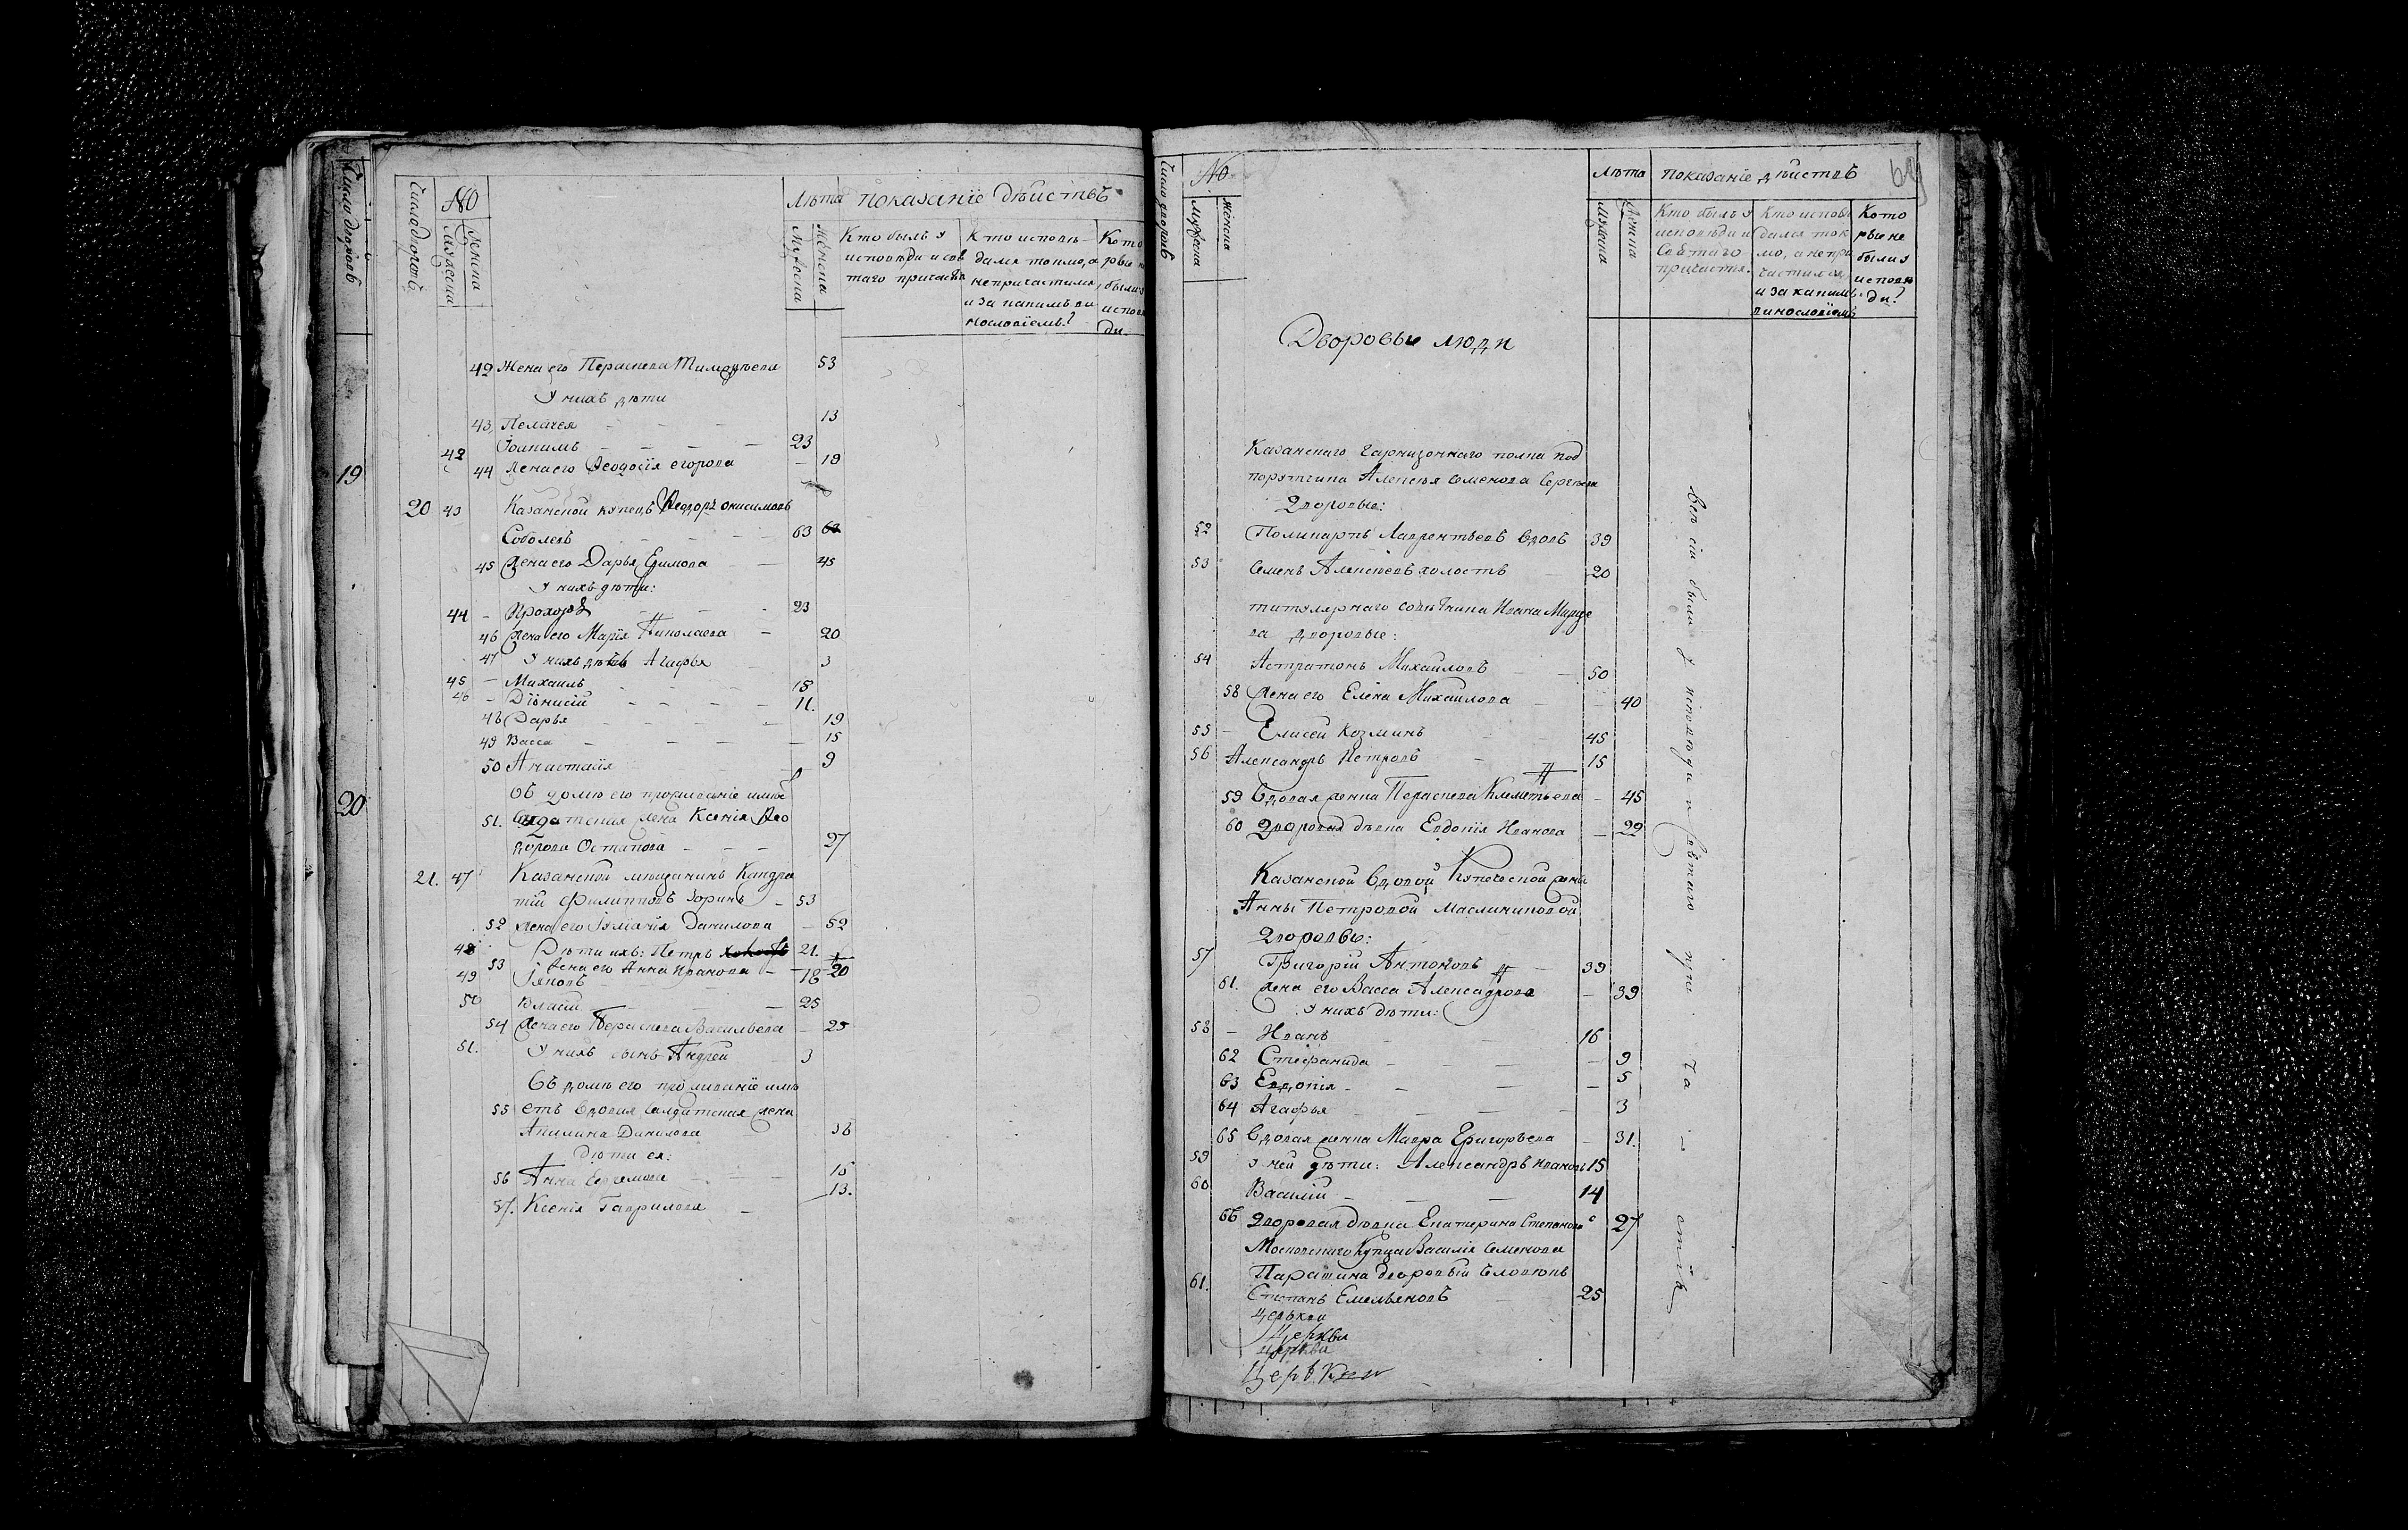 Число дворовъ
19
20
Число дворовъ
№
Мужеска
Женска
Лѣта
Мужеска
Женска
показанїе дѣйствъ
Кто былъ у
исповѣди и свя
таго причастїя
Кто исповѣ
дался токмо, а
непричастился
и за какимъ ви
нословїемъ?
Кото
рые не
были у
исповѣ
ди.
42 Жена его Пераскева Тимофѣева 53
У нихъ дѣти
43 Пелагея 13
42 Іоакимъ 23
44 Жена его Ѳеодосїя егорова 19
20 43 Казанской купецъ Ѳеодоръ онисимовъ
Соболевъ 63
45 Жена его Дарья Ефимова 45
У нихъ дѣти:
44 Прохоръ 23
46 Жена его Марїя Николаева 20
47 У нихъ дѣтъ Агафья 3
45 Михаилъ 15
46 Дїонисїй 11.
48 Дарья 19
49 Васса 15
50 Анастасїя 9
Въ домѣ его проживанїе имѣе
51. Салдатская жена Ксенїя Ѳео
дорова Остапова 27
21. 47 Казанской мещанинъ Кандра
тїй Филипповъ Зоринъ 53
52 Жена его Іулїанїя Данилова 52
48 Дѣти ихъ: Петръ 21.
53 Жена его Анна Иванова 20
49 Іяковъ 18
50 Власїй 25
54 Жена его Пераскева Васильева 25
51. У нихъ сынъ Андрей 3
Въ домѣ его проживанїе имѣ
55 етъ вдовая салдатская жена
Акилина Данилова 36
Дѣти ея:
56 Анна 15
57. Ксенїя Гаврилова 13.
Число дворовъ
№
Мужеска
Женска
Лѣта
Мужеска
Женска
показанїе дѣйствъ
69
Кто былъ у
исповѣди и
Святаго
причастїя.
Кто исповѣ
дался ток
мо, а непри
частился
и за какимъ
винословїемъ
Кото
рые не
были у
исповѣ
ди?
Дворовые люди
Казанскаго гарнизоннаго полка под
порутчика Алексѣя Семенова Сергѣева
Дворовые:
52 Поликарпъ Лаврентьевъ вдовъ 39
53 Семенъ Алексѣевъ холостъ 20
титулярнаго совѣтника Ивана
ва дворовые:
54 Астратонъ Михайловъ 50
58 Жена его Елена Михайлова 40
55 Елисей Козминъ 45
56 Александръ Петровъ 15
59 Вдовая женка Пераскева Клеметьева 45
60 Дворовая дѣвка Евдокїя Иванова 29
Казанской вдовой купеческой жены
Анны Петровой Маслениковой
Дворовые:
57 Григорїй Антоновъ 39
61. Жена его Васса Александрова 39
У нихъ дѣти:
58 Иванъ 16
62 Стефанида 9
63 Евдокїя 5
64 Агафья 3
65 Вдовая женка Мавра Григорьева 31.
59 У ней дѣти: Александръ Ивановъ 15
60 Василїй 14
66 Дворовая дѣвка Екатерина Степанова 27
Московскаго Купца Василїя Семенова
дворовый человѣкъ
61. Степанъ Емельяновъ 25
Церькви
Церкви
церкви
Церькви
Всѣ сїи были у исповѣди и святаго при ча стїя